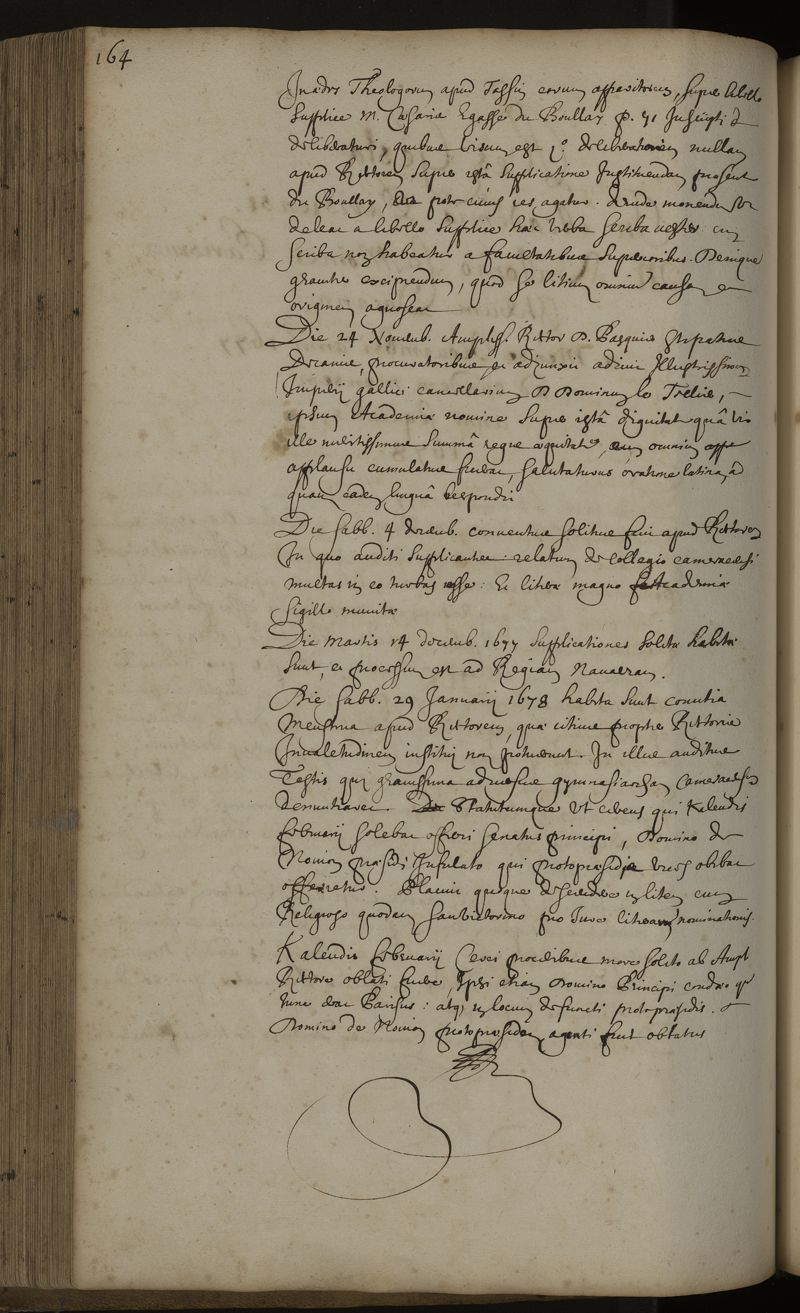 164
Theologorum apud Tassin eorum apparitorem, super libello
supplice M. Cæsaris Egasse du Boullay p. 41 inscripti
deliberaturi, quibus visum est 1º deliberationem nullam
apud Rectorem super istâ supplicatione instituendam præsente
du Boullay, cuius res agatur. deinde monendum
deleat a libello supplice hæc verba scriba vester cum
scriba non habeatur a facultatibus superioribus. Denique
graviter excipiendum, quod se litium omnium causam et
originem agnoscat
Die 24 Novemb. Ampliss. Rector D. Pasquier stipatus
Decanis, procuratoribus et adjunxit adivit Illustrissimum
Imperij gallici cancellarium D Dominum le Tellier,
ipsum Academiæ nomine super istâ dignitate quâ vir
ille meritissimus summâ regis æquitate, cum omnium
applausu cumulatus fuerat, salutaturus oratione latina, ad
quam eadem linguâ respondit
Die sabb. 4 decemb. conventus solitus fuit apud Rectorem
In quo auditi supplicantes: relatum de collegio cameracensi
multas in eo turbas esse: Et literæ magno Academiæ
sigillo munitæ
Die Martis 14 decemb. 1677 supplicationes solitæ habitæ
sunt, et processum est ad Regiam Navarram.
Die sabb. 29 Januarij 1678 habita sunt comitia
Menstrua apud Rectorem, quæ citius propter Rectoris
Invaletudinem institui non potuerunt. In illis auditus
Testis qui gravissima adversus gymnasiarcham Cameracensem
denuntiavit. Statutumque ut cereus qui Kalendis
februarij solebat offerri senatus principi, Domino de
Novion præsidi Infulato qui protopræsidis vices obibat
offerretur. Placuit quoque descendere in litem cum
Religioso quodam sanvictorino pro Jure literarum nominationis.
Kalendis februarij Cerei proceribus more solito ab Ampl
Rectore oblati fuere, Ipsi etiam Domino Principi Condæo qui
tunc erat Parisiis: atque in locum defuncti protopræsidis.
Domino de Novion protopræsidem agenti fuit oblatus